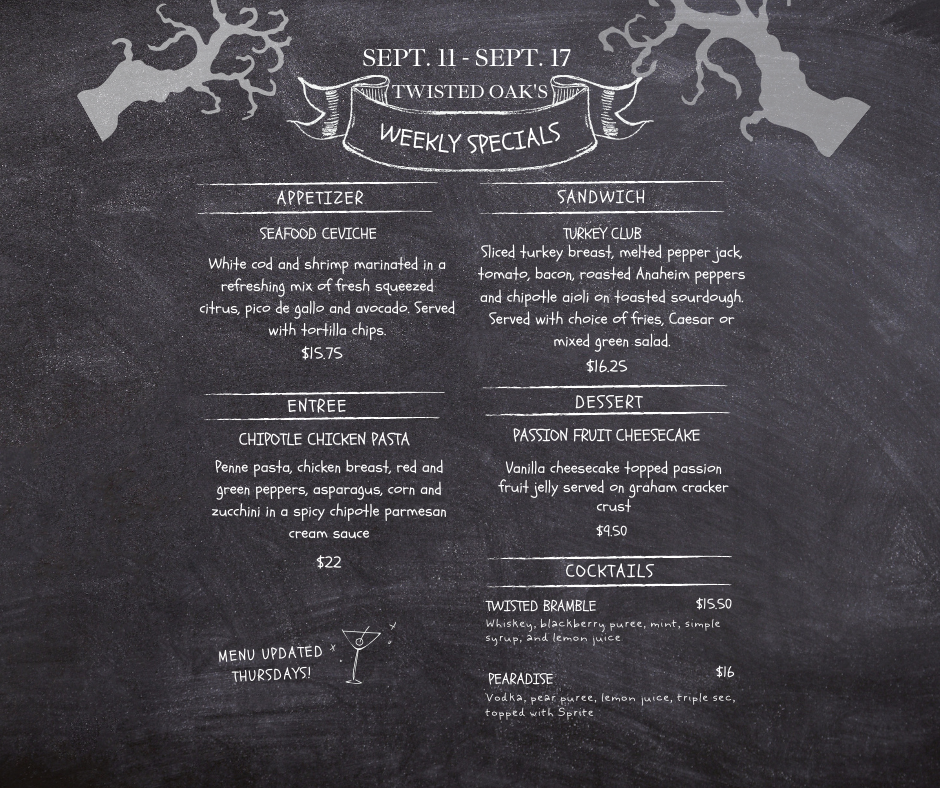 SEPT. 11 - SEPT. 17
TWISTED OAK'S
WEEKLY SPECIALS
APPETIZER
SEAFOOD CEVICHE
White cod and shrimp marinated in a
refreshing mix of fresh squeezed
citrus, pico de gallo and avocado. Served
with tortilla chips.
$15.75
ENTREE
CHIPOTLE CHICKEN PASTA
Penne pasta, chicken breast, red and
green peppers, asparagus, corn and
zucchini in a spicy chipotle parmesan
cream sauce
$22
MENU UPDATED
THURSDAYS!
SANDWICH
TURKEY CLUB
Sliced turkey breast, melted pepper jack,
tomato, bacon, roasted Anaheim peppers
and chipotle aioli on toasted sourdough.
Served with choice of fries, Caesar or
mixed green salad.
$16.25
DESSERT
PASSION FRUIT CHEESECAKE
Vanilla cheesecake topped passion
fruit jelly served on graham cracker
crust
$9.50
COCKTAILS
TWISTED BRAMBLE $15.50
Whiskey, blackberry puree, mint, simple
syrup, and lemon juice
PEARADISE $16
Vodka, pear puree, lemon juice, triple sec,
topped with Sprite